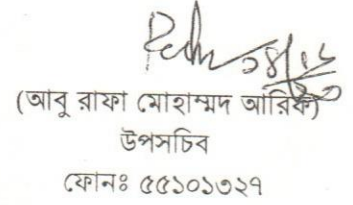 (আবু রাফা মোহাম্মদ আরিফ)
উপসচিব
ফোনঃ ৫৫১০১৩২৭